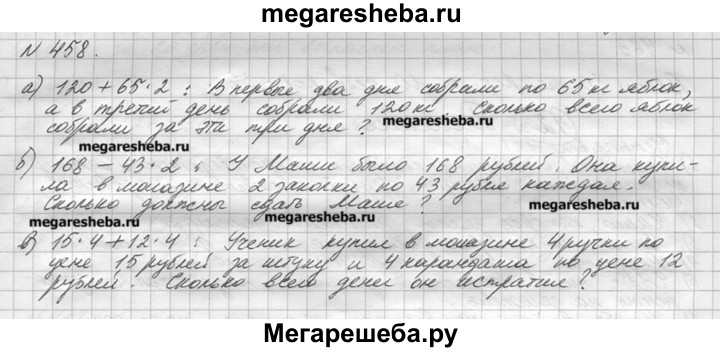 megaresheba.ru
N 458.
megaresheba.ru
а) 120 + 65·2 : В первые два дня собрали по 65 кг яблок,
а в третий день собрали 120 кг сколько всего яблок
собрали за эти три дня?
megaresheba.ru
megaresheba.ru
б) 168 – 43·2 : У Маши было 168 рублей. Она купи-
ла в магазине 2 заколки по 43 рубля каждая.
Сколько должны сдать Маше?
megaresheba.ru
megaresheba.ru
megaresheba.ru
в) 15·4 + 12·4 : Ученик купил в магазине 4 ручки по
цене 15 рублей за штуку и 4 карандаша по цене 12
рублей. Сколько всего денег он истратил?
Мегарешеба.ру